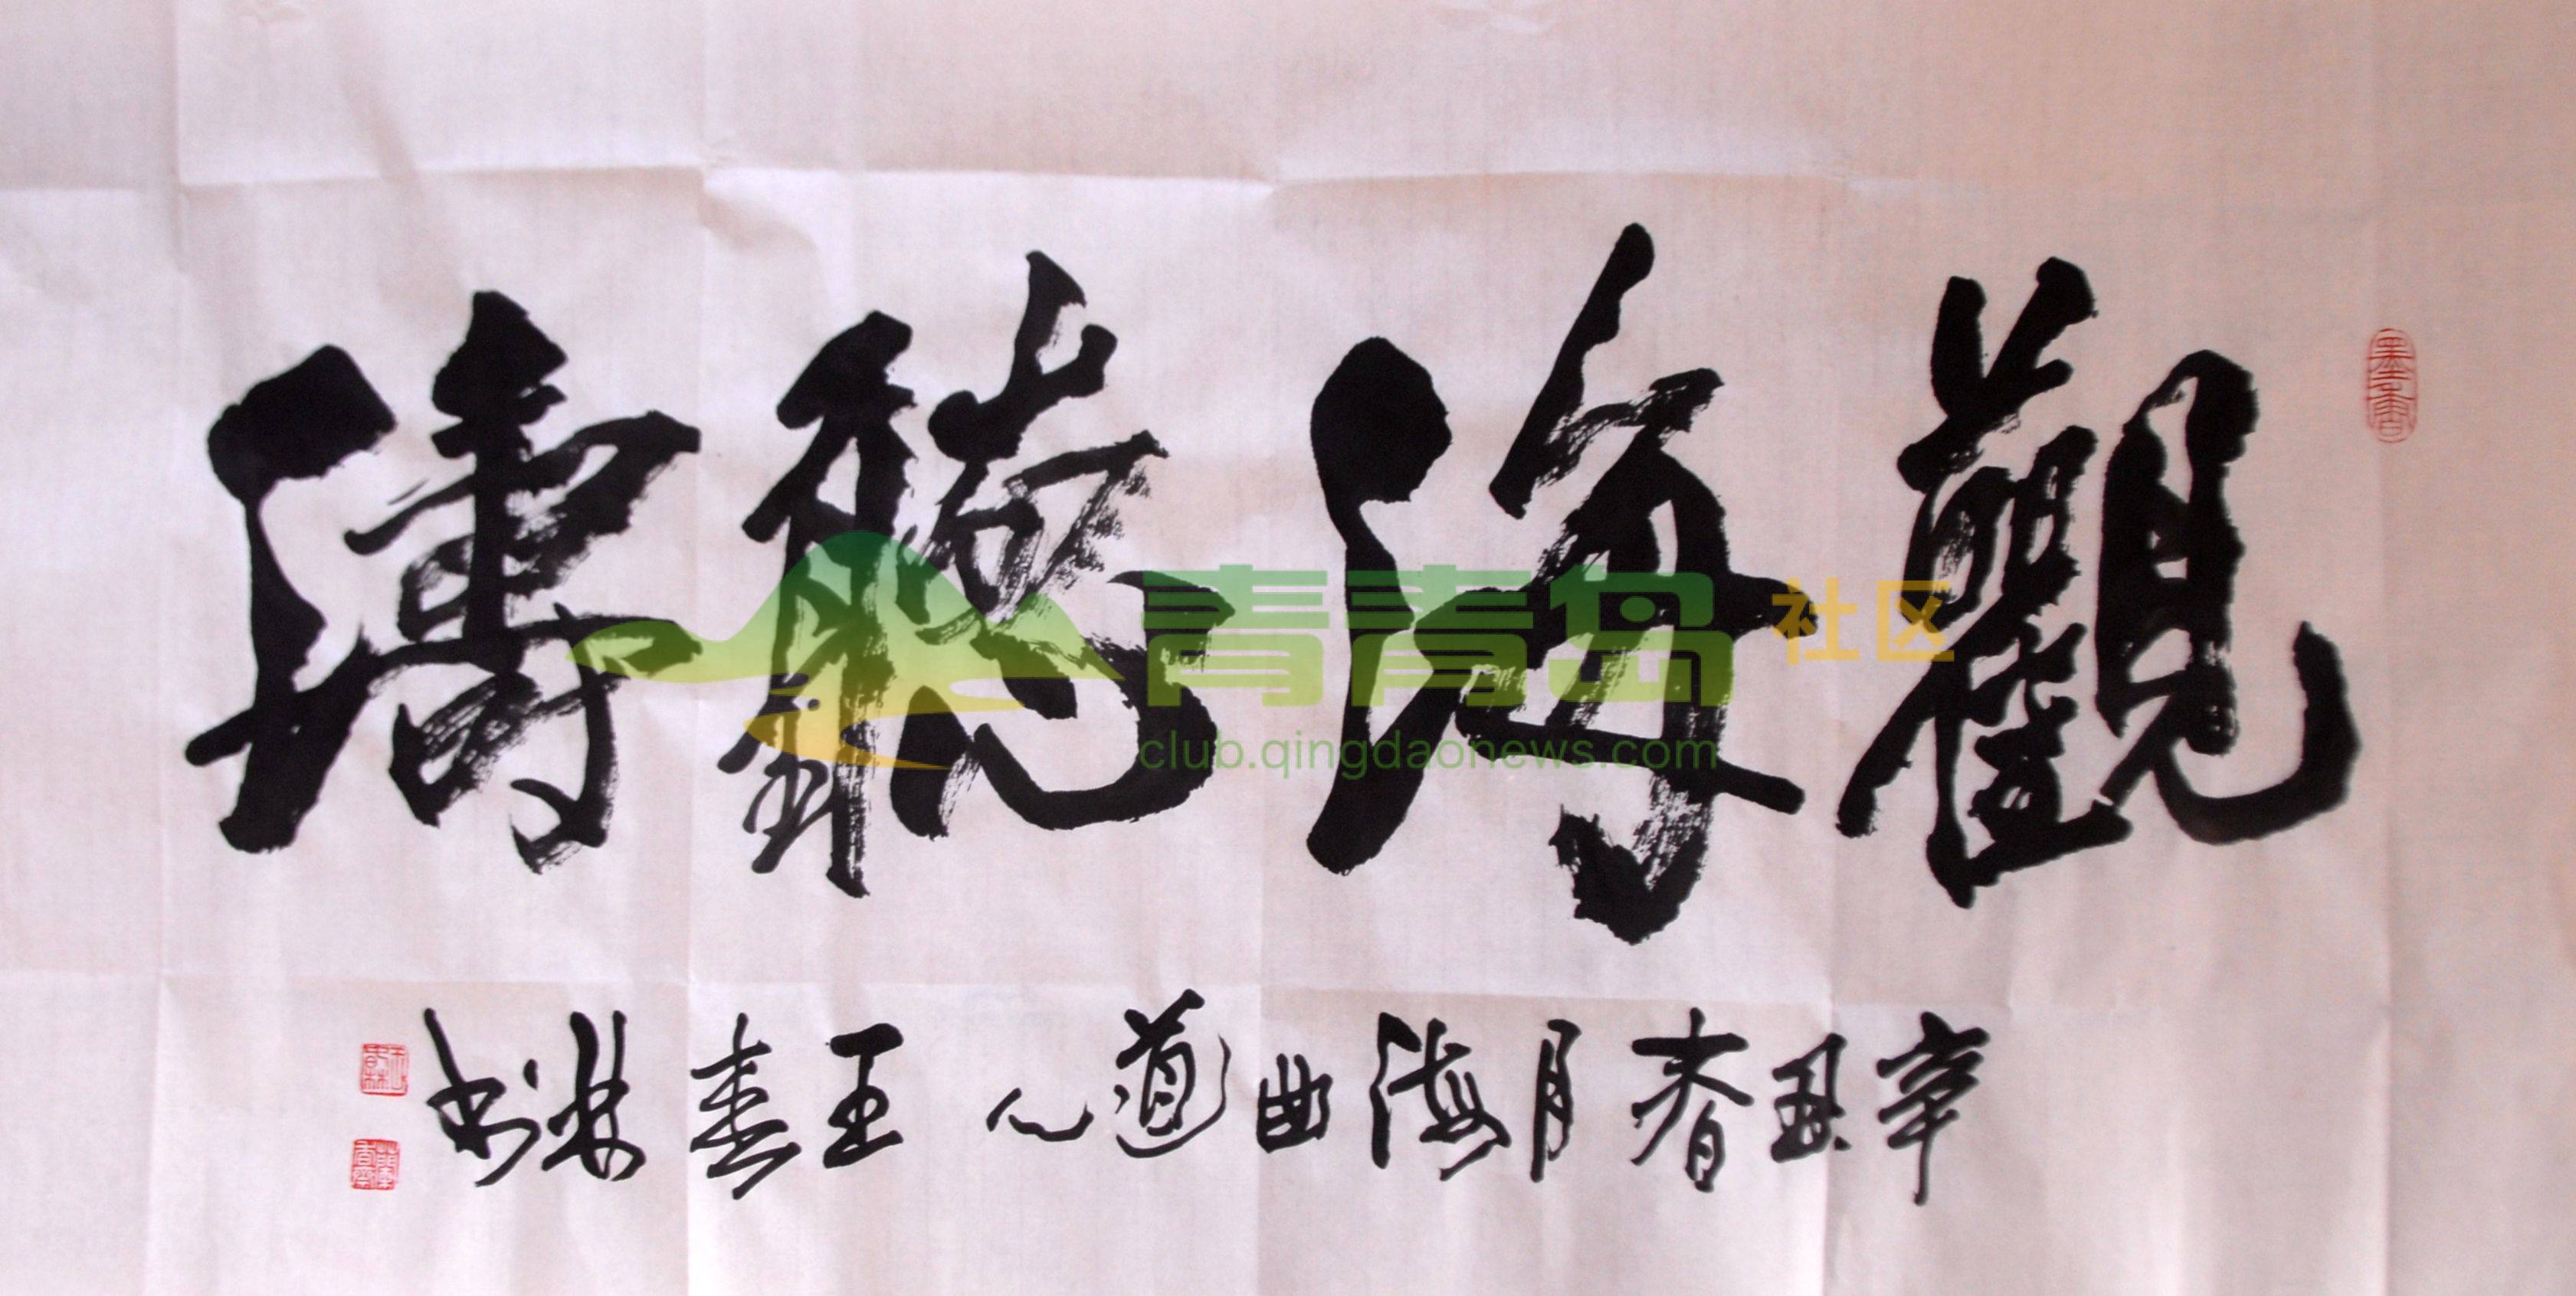 觀海聽濤
辛丑春月海曲道人 王春林书
墨香
青青岛社区
club.qingdaonews.com